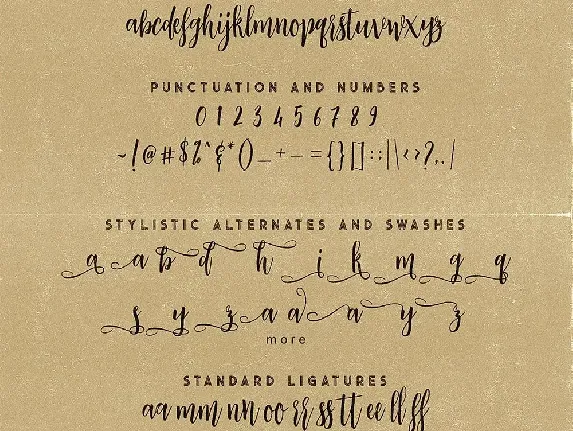 abcdefghijklmnopqrstuvwxyz
PUNCTUATION AND NUMBERS
0 1 2 3 4 5 6 7 8 9
~!@#$%^&*()_+-={}[]:;|\<>?,./
STYLISTIC ALTERNATES AND SWASHES
a a b d h i k m g q
s y z a a a y z
more
STANDARD LIGATURES
aa mm nn oo rr ss tt ee ll ff